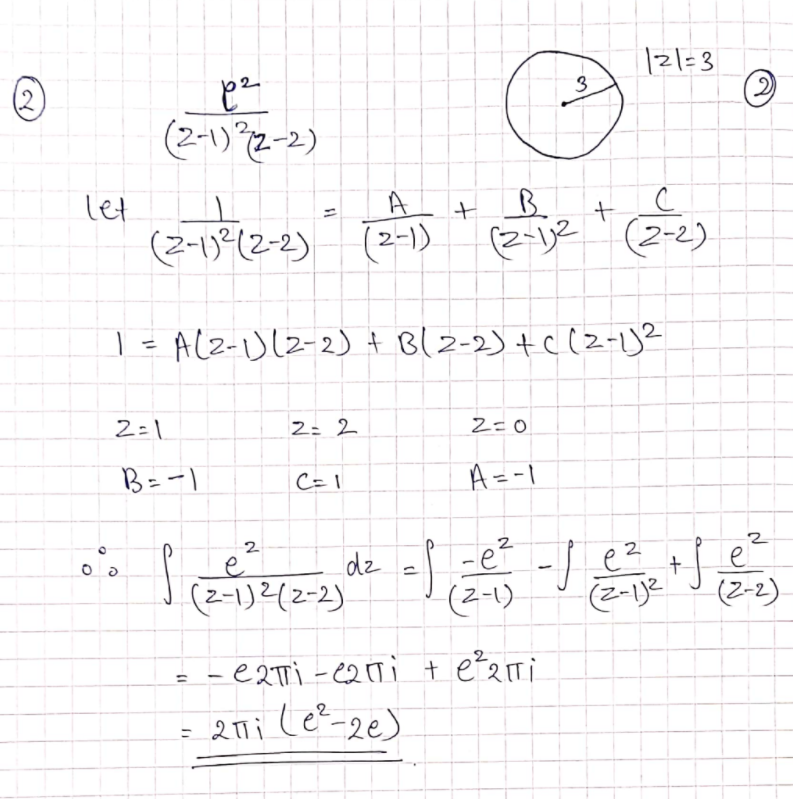 |z|=3
② e^z / (z-1)²(z-2) 3 ②
let 1 / (z-1)²(z-2) = A / (z-1) + B / (z-1)² + C / (z-2)
1 = A(z-1)(z-2) + B(z-2) + C(z-1)²
z=1 z=2 z=0
B=-1 C=1 A=-1
∴ ∫ e^z / (z-1)²(z-2) dz = ∫ -e^z / (z-1) - ∫ e^z / (z-1)² + ∫ e^z / (z-2)
= -e2πi - e2πi + e²2πi
= 2πi (e²-2e)